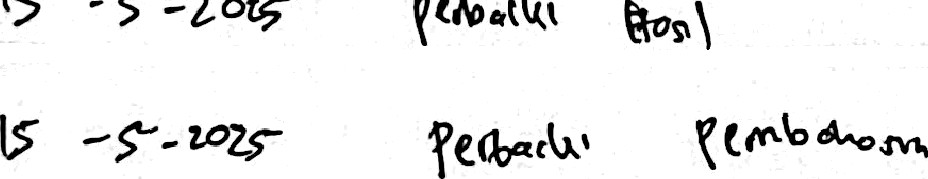 15 -5-2025 Perbaiki Hasil
15 -5-2025 Perbaiki Pembahasan